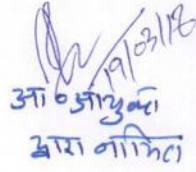 19/03/18
आ० आयुक्त
द्वारा नामित